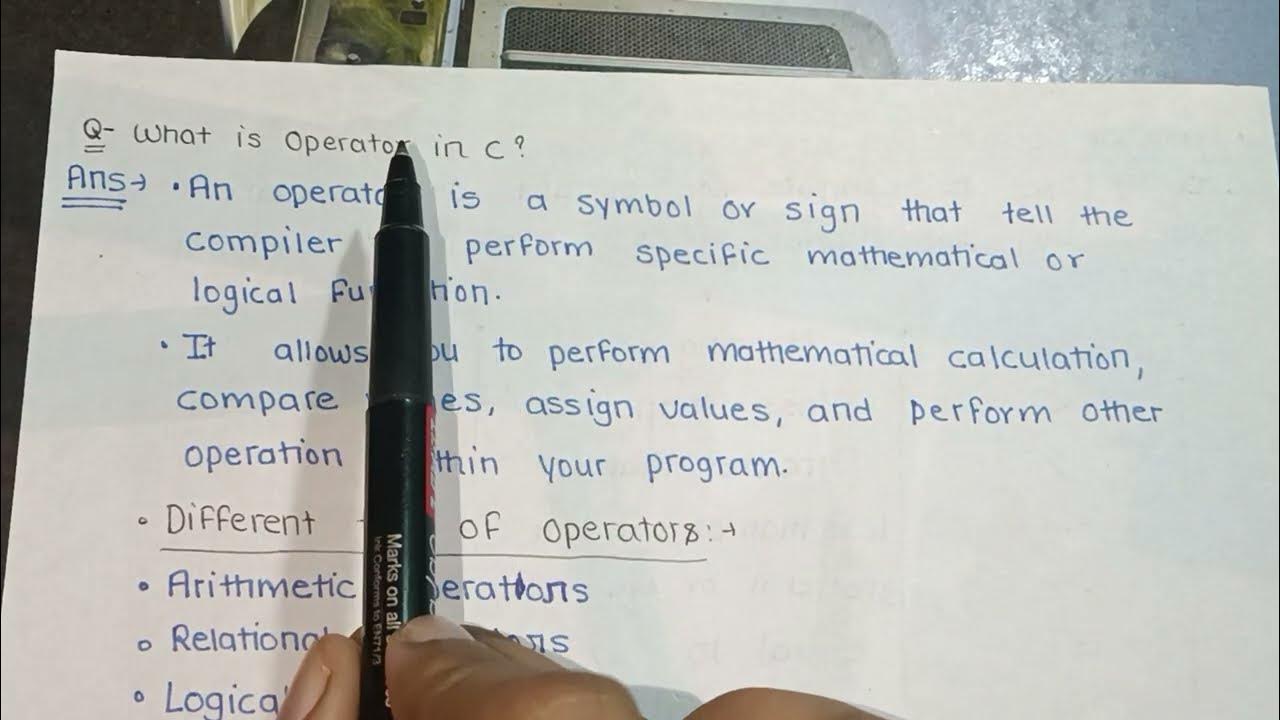 Q- What is Operator in C?
Ans→ • An operator is a symbol or sign that tell the
compiler perform specific mathematical or
logical Function.
• It allows you to perform mathematical calculation,
compare values, assign values, and perform other
operation within your program.
• Different of operators:→
• Arithmetic Operations
• Relational
• Logical
Marks on all
Ink Conforms to EN71/3